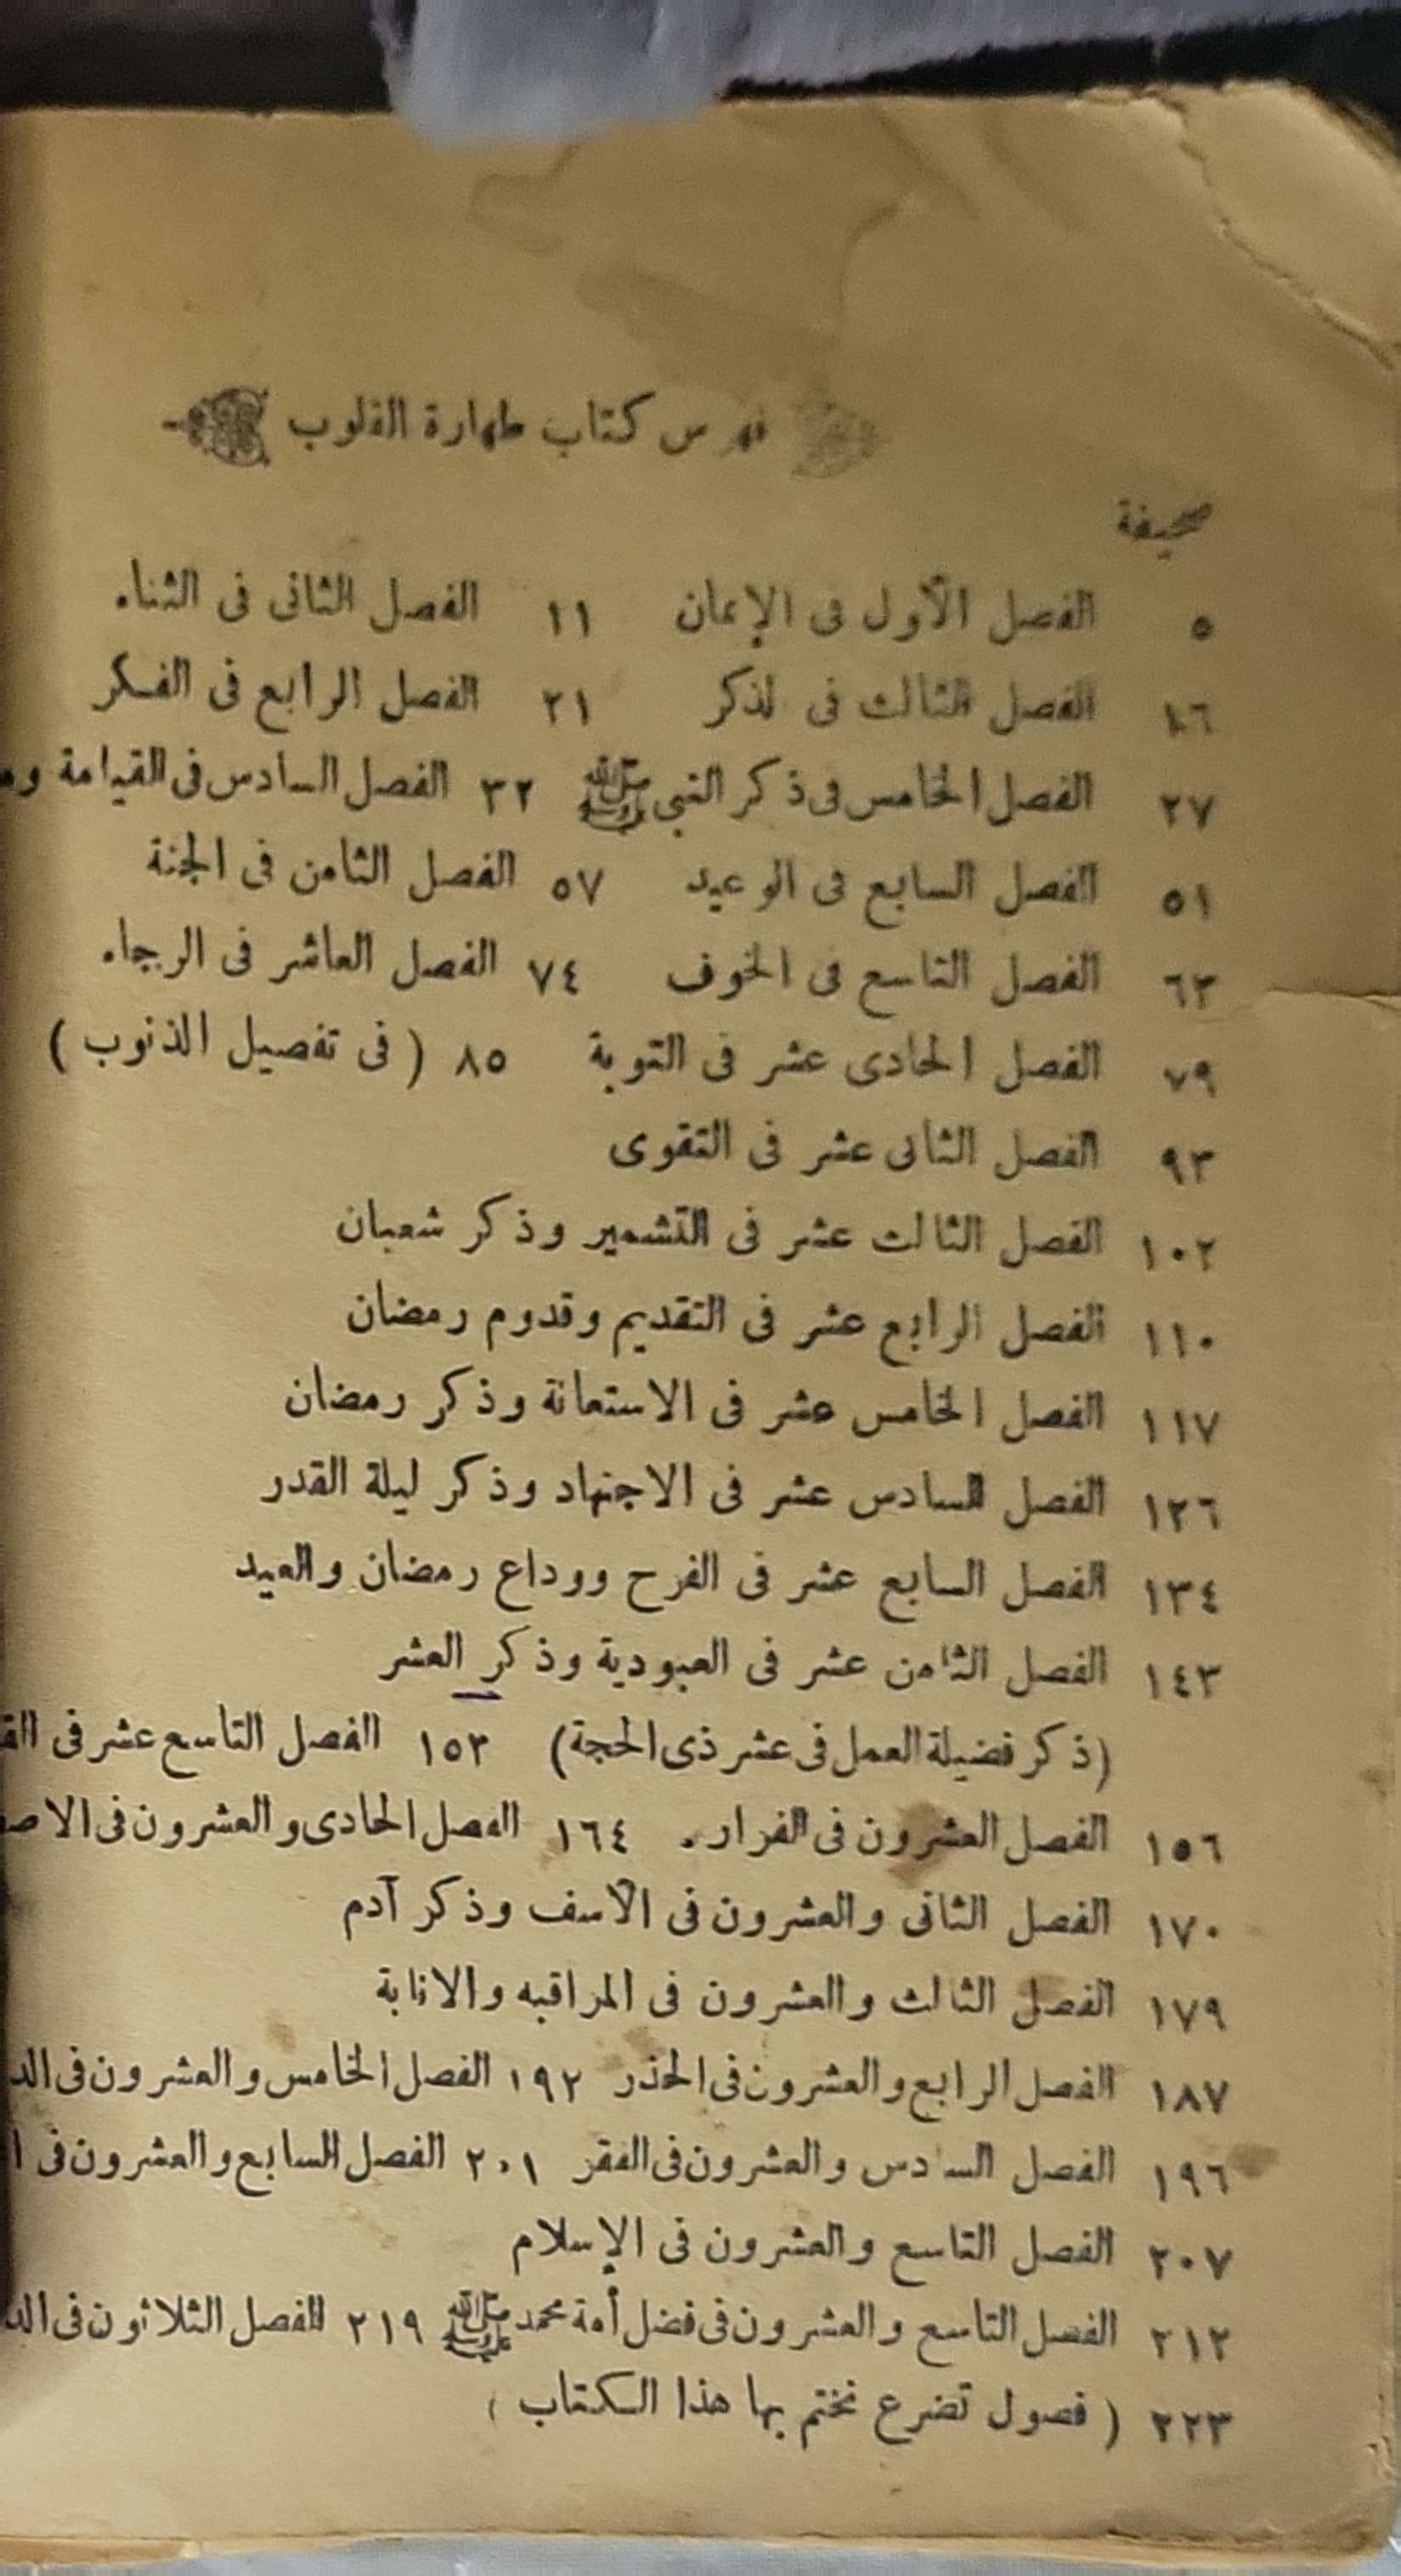 فهرس كتاب طهارة القلوب
صحيفة
٥ الفصل الأول فى الإيمان ١١ الفصل الثانى فى الثناء
١٦ الفصل الثالث فى لذكر ٢١ الفصل الرابع فى الفكر
٢٧ الفصل الخامس فى ذكر النبى ﷺ ٣٢ الفصل السادس فى القيامة
٥١ الفصل السابع فى الوعيد ٥٧ الفصل الثامن فى الجنة
٦٣ الفصل التاسع فى الخوف ٧٤ الفصل العاشر فى الرجاء
٧٩ الفصل الحادى عشر فى التوبة ٨٥ ( فى تفصيل الذنوب )
٩٣ الفصل الثانى عشر فى التقوى
١٠٢ الفصل الثالث عشر فى التشمير وذكر شعبان
١١٠ الفصل الرابع عشر فى التقديم وقدوم رمضان
١١٧ الفصل الخامس عشر فى الاستعانة وذكر رمضان
١٢٦ الفصل السادس عشر فى الاجتهاد وذكر ليلة القدر
١٣٤ الفصل السابع عشر فى الفرح ووداع رمضان والعيد
١٤٣ الفصل الثامن عشر فى العبودية وذكر العشر
(ذكر فضيلة العمل فى عشر ذى الحجة) ١٥٣ الفصل التاسع عشر فى
١٥٦ الفصل العشرون فى الفرار . ١٦٤ الفصل الحادى والعشرون فى
١٧٠ الفصل الثانى والعشرون فى الأسف وذكر آدم
١٧٩ الفصل الثالث والعشرون فى المراقبه والانابة
١٨٧ الفصل الرابع والعشرون فى الحذر ١٩٢ الفصل الخامس والعشرون فى
١٩٦ الفصل السادس والعشرون فى الفقر ٢٠١ الفصل السابع والعشرون فى
٢٠٧ الفصل التاسع والعشرون فى الإسلام
٢١٢ الفصل التاسع والعشرون فى فضل أمة محمد ﷺ ٢١٩ الفصل الثلاثون فى
٢٢٣ ( فصول تضرع نختم بها هذا الكتاب )